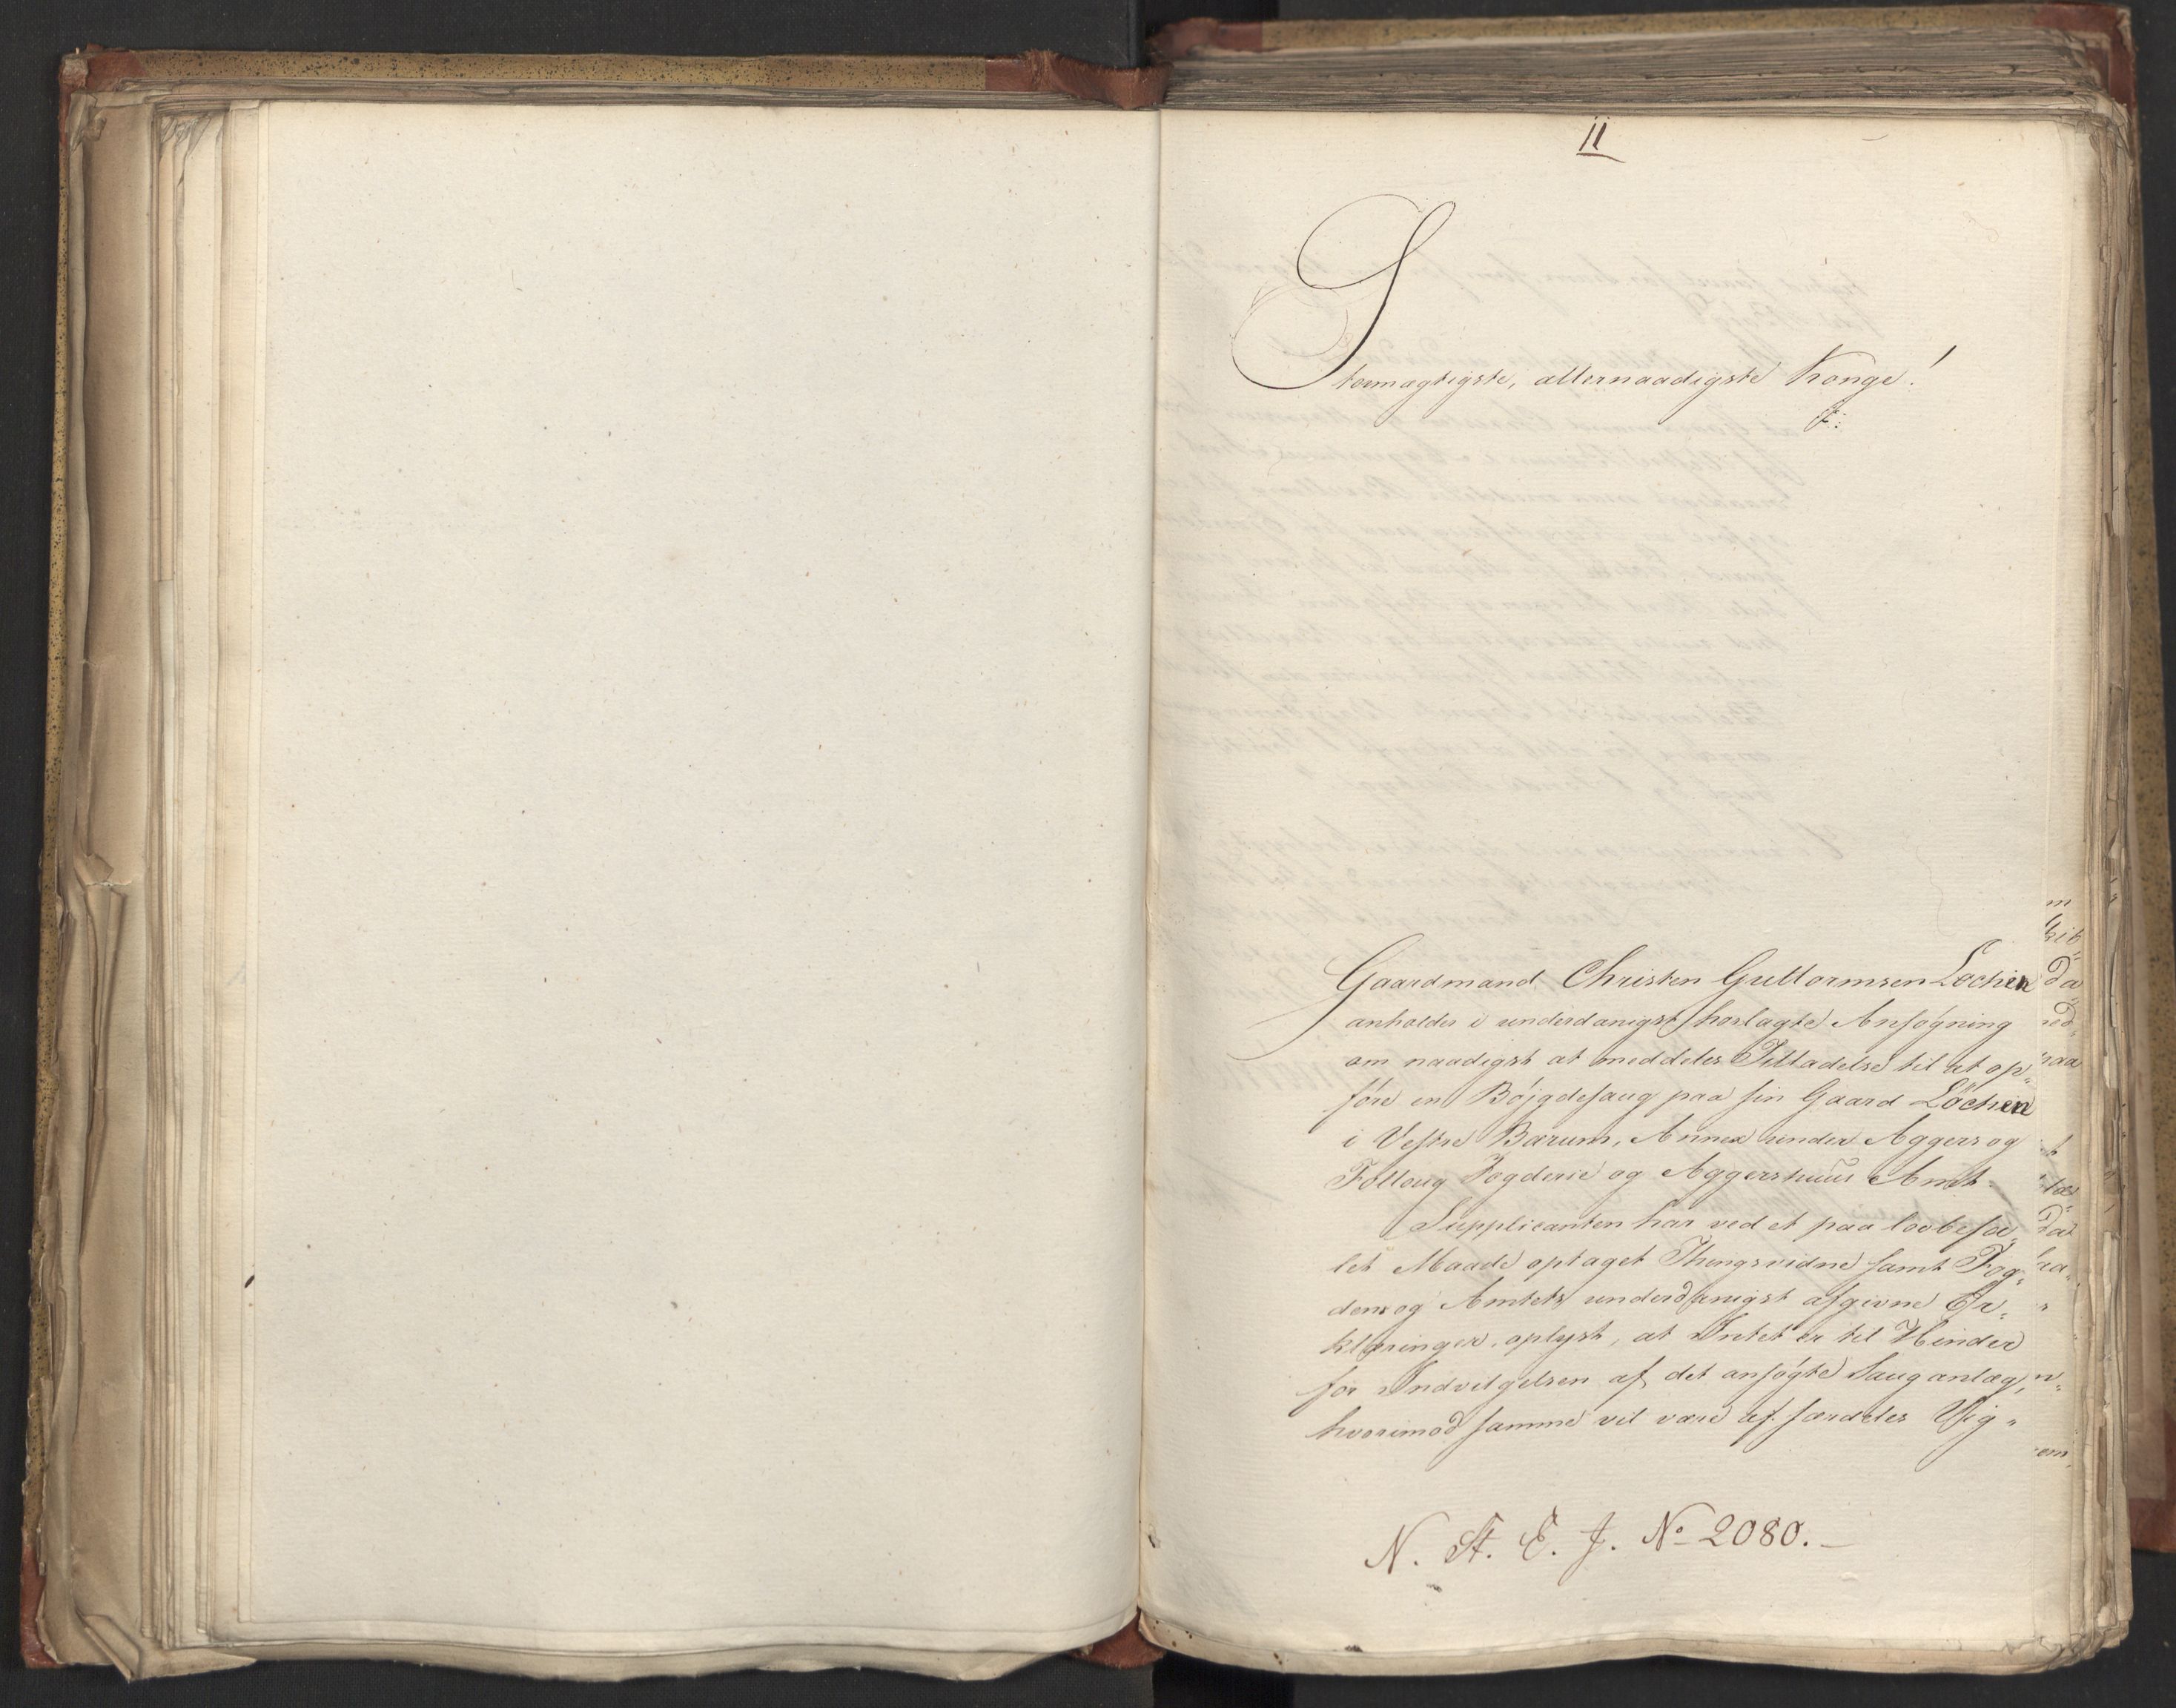 11
Stormagtigste, allernaadigste Konge!
Gaardmand Christen Guttormsen Løchen
anholder i underdanigst hoslagte Ansøgning
om naadigst at meddeles Tilladelse til at op„
føre en Bøjgdesaug paa sin Gaard Løchen
i Vestre Bærum, Annex under Aggers og
Folloug Fogderie og Aggershuus Amt.
Supplicanten har ved et paa lovbefa„
let Maade optaget Thingsvidne samt Fog„
dens og Amtets underdanigst afgivne Er„
klæringer, oplyst, at Intet er til Hinder
for Indvilgelsen af det ansøgte Sauganlæg,
hvorimod samme vil være af særdeles Vig„
N. St. E. J. No 2080.